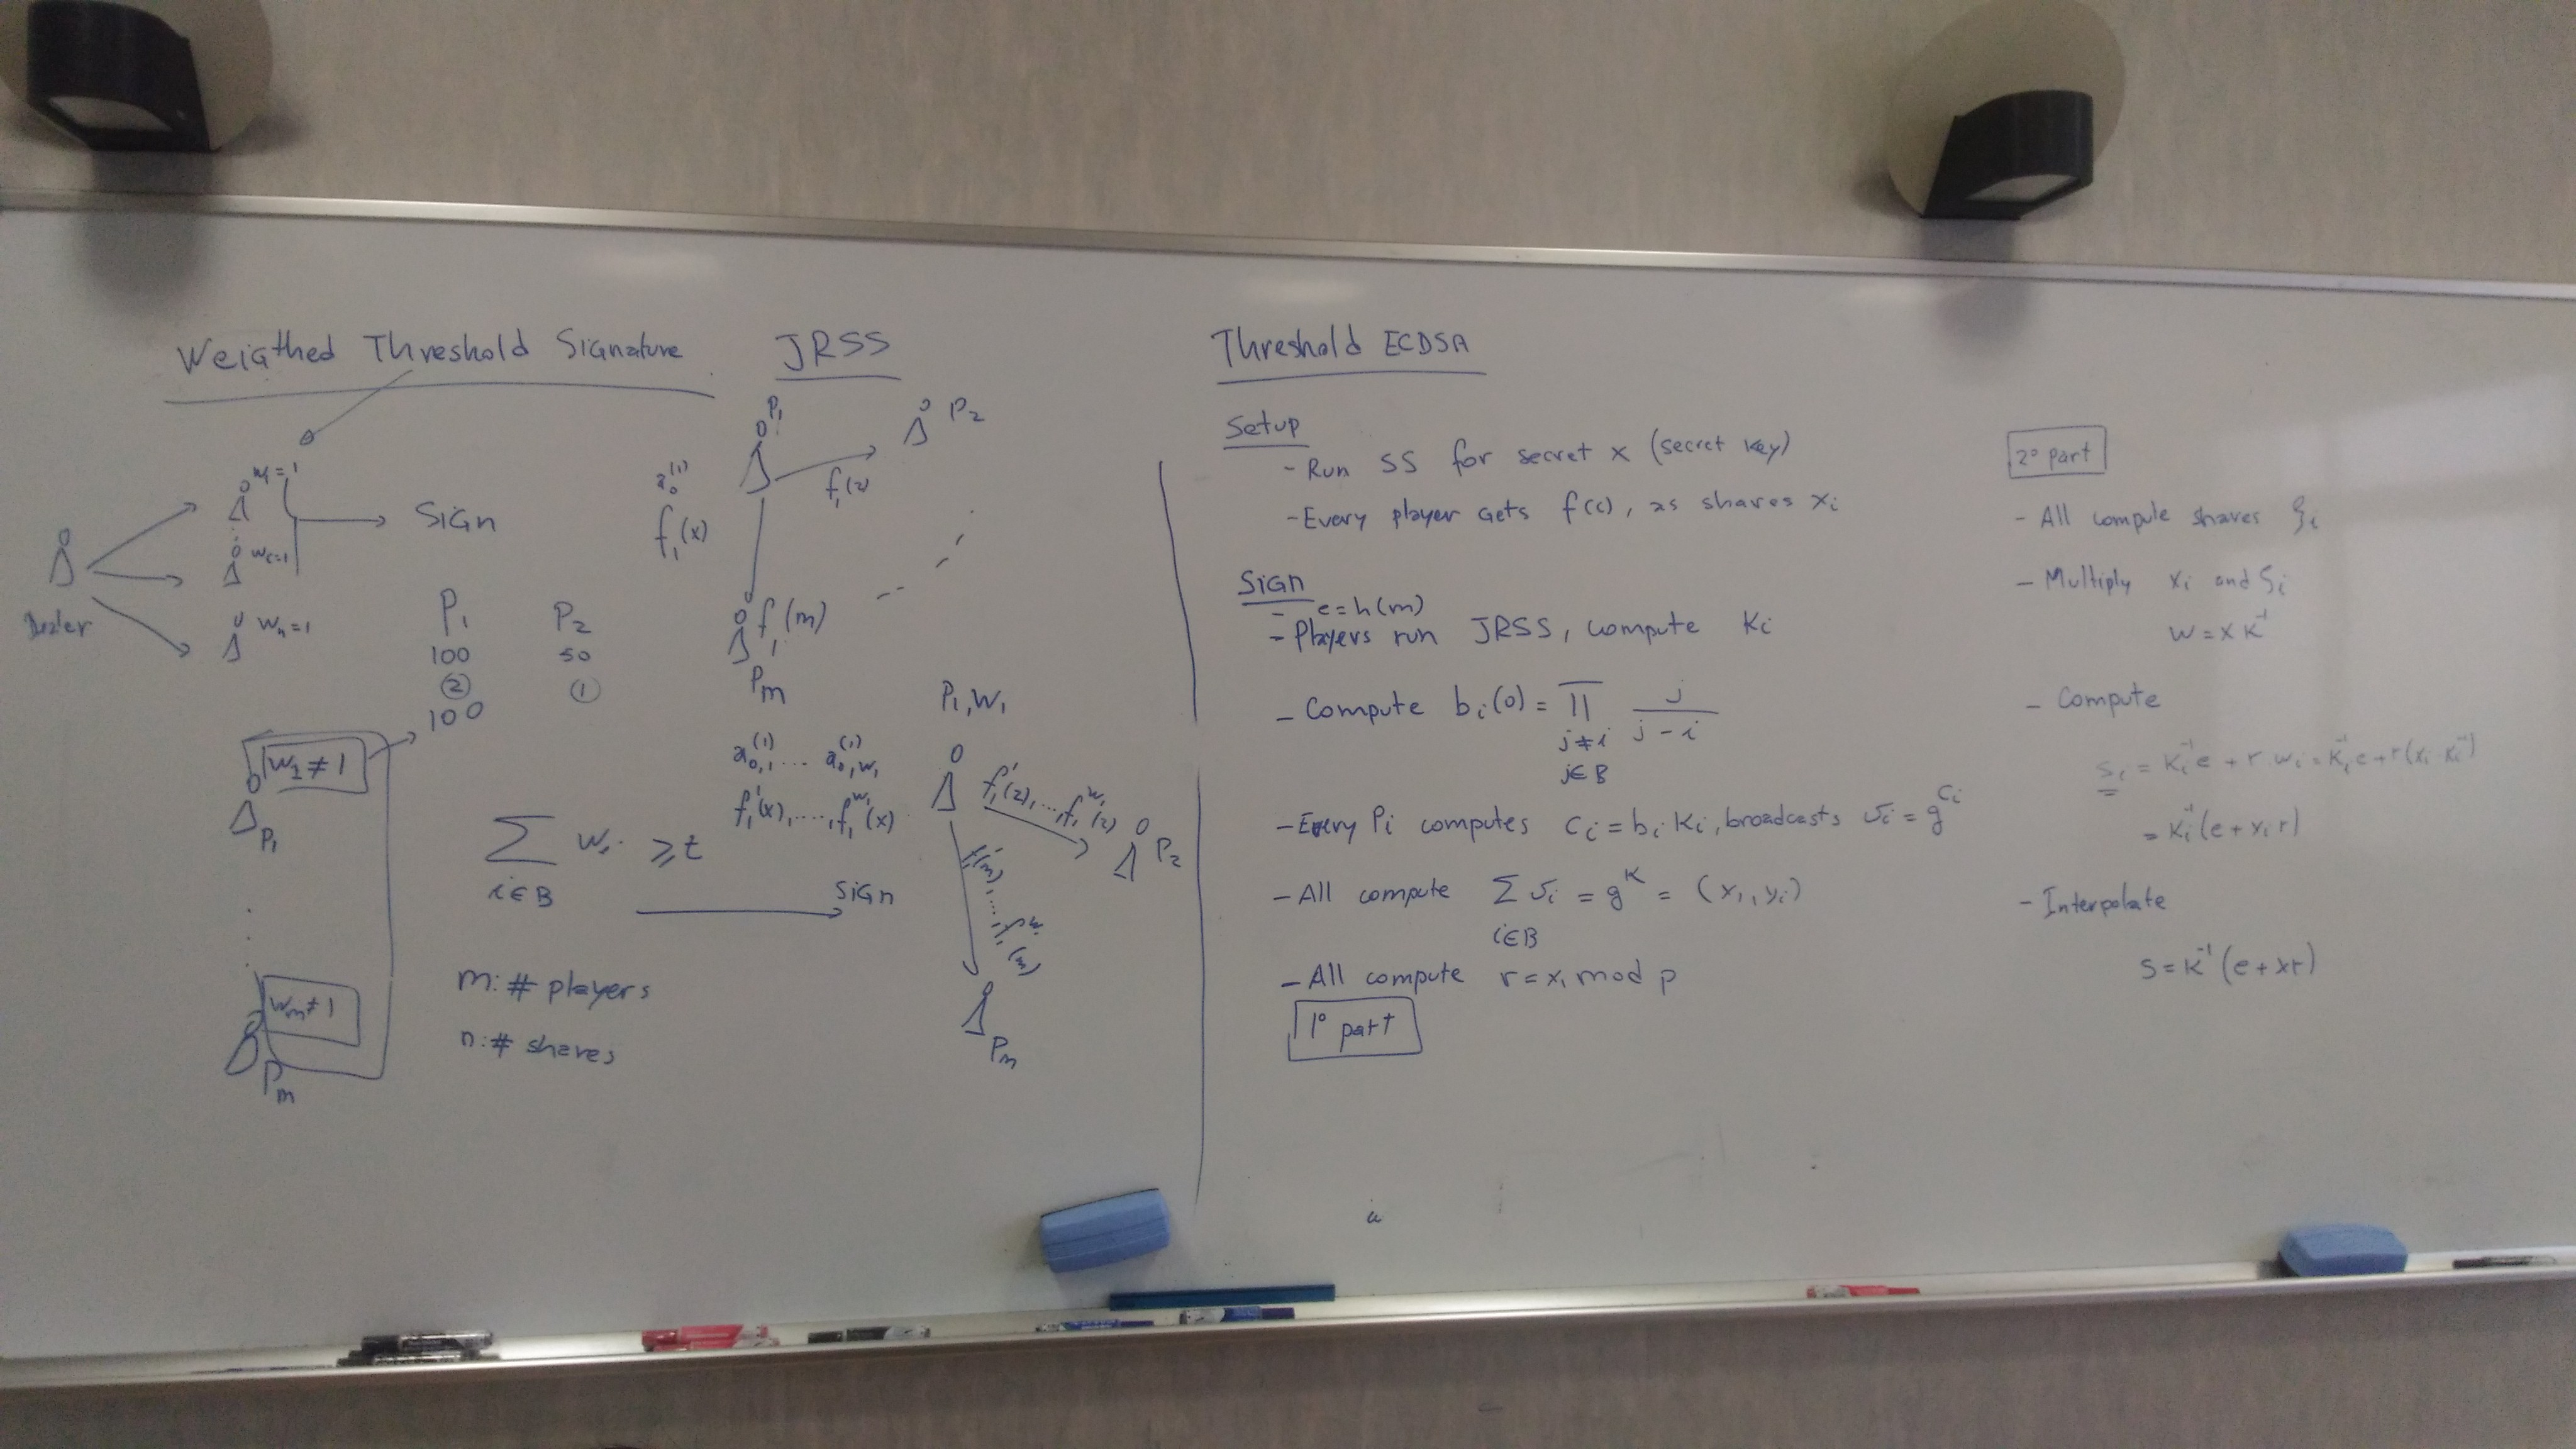 Weigthed Threshold Signature
w₁=1
Sign
wᵢ=1
Dealer
wₙ=1
P₁ P₂
100 50
② ①
100
w₁≠1
P₁
∑ wᵢ ≥ t
i∈B
Sign
m: # players
n: # shares
wₘ≠1
Pₘ
JRSS
P₁
P₂
a₀⁽¹⁾
f₁(2)
f₁(x)
f₁(m)
Pₘ
P₁, w₁
a₀,₁⁽¹⁾ ... a₀,w₁⁽¹⁾
f₁¹(x), ..., f₁^w₁(x)
f₁¹(2), ... f₁^w₁(2)
P₂
Pₘ
Threshold ECDSA
Setup
- Run SS for secret x (secret key)
- Every player Gets f(i), as shares xᵢ
Sign
- e=h(m)
- Players run JRSS, compute kᵢ
- Compute bᵢ(0) = ∏ j/(j-i)
j≠i
j∈B
- Every Pᵢ computes cᵢ = bᵢ kᵢ, broadcasts vᵢ = g^cᵢ
- All compute ∑ vᵢ = g^k = (x₁, y₁)
i∈B
- All compute r = x₁ mod p
1º part
2º part
- All compute shares ξᵢ
- Multiply xᵢ and ξᵢ
w = x k⁻¹
- Compute
sᵢ = kᵢ⁻¹e + r wᵢ = kᵢ⁻¹e + r(xᵢ kᵢ⁻¹)
= kᵢ⁻¹(e + xᵢ r)
- Interpolate
s = k⁻¹(e + xr)